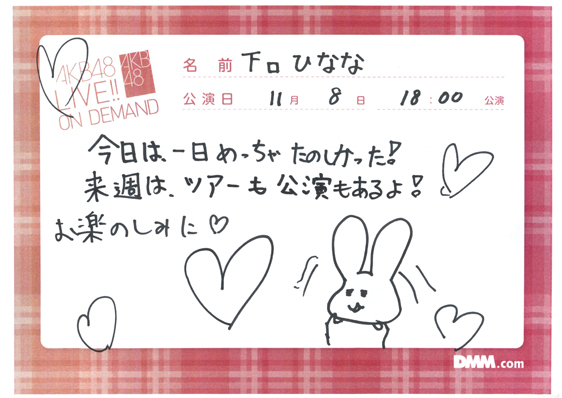 AKB48
LIVE!!
ON DEMAND
AKB
48
名前 下口ひなな
公演日 11月 8日 18:00 公演
今日は、一日めっちゃたのしかった!
来週は、ツアーも公演もあるよ!
お楽のしみに♡
DMM.com